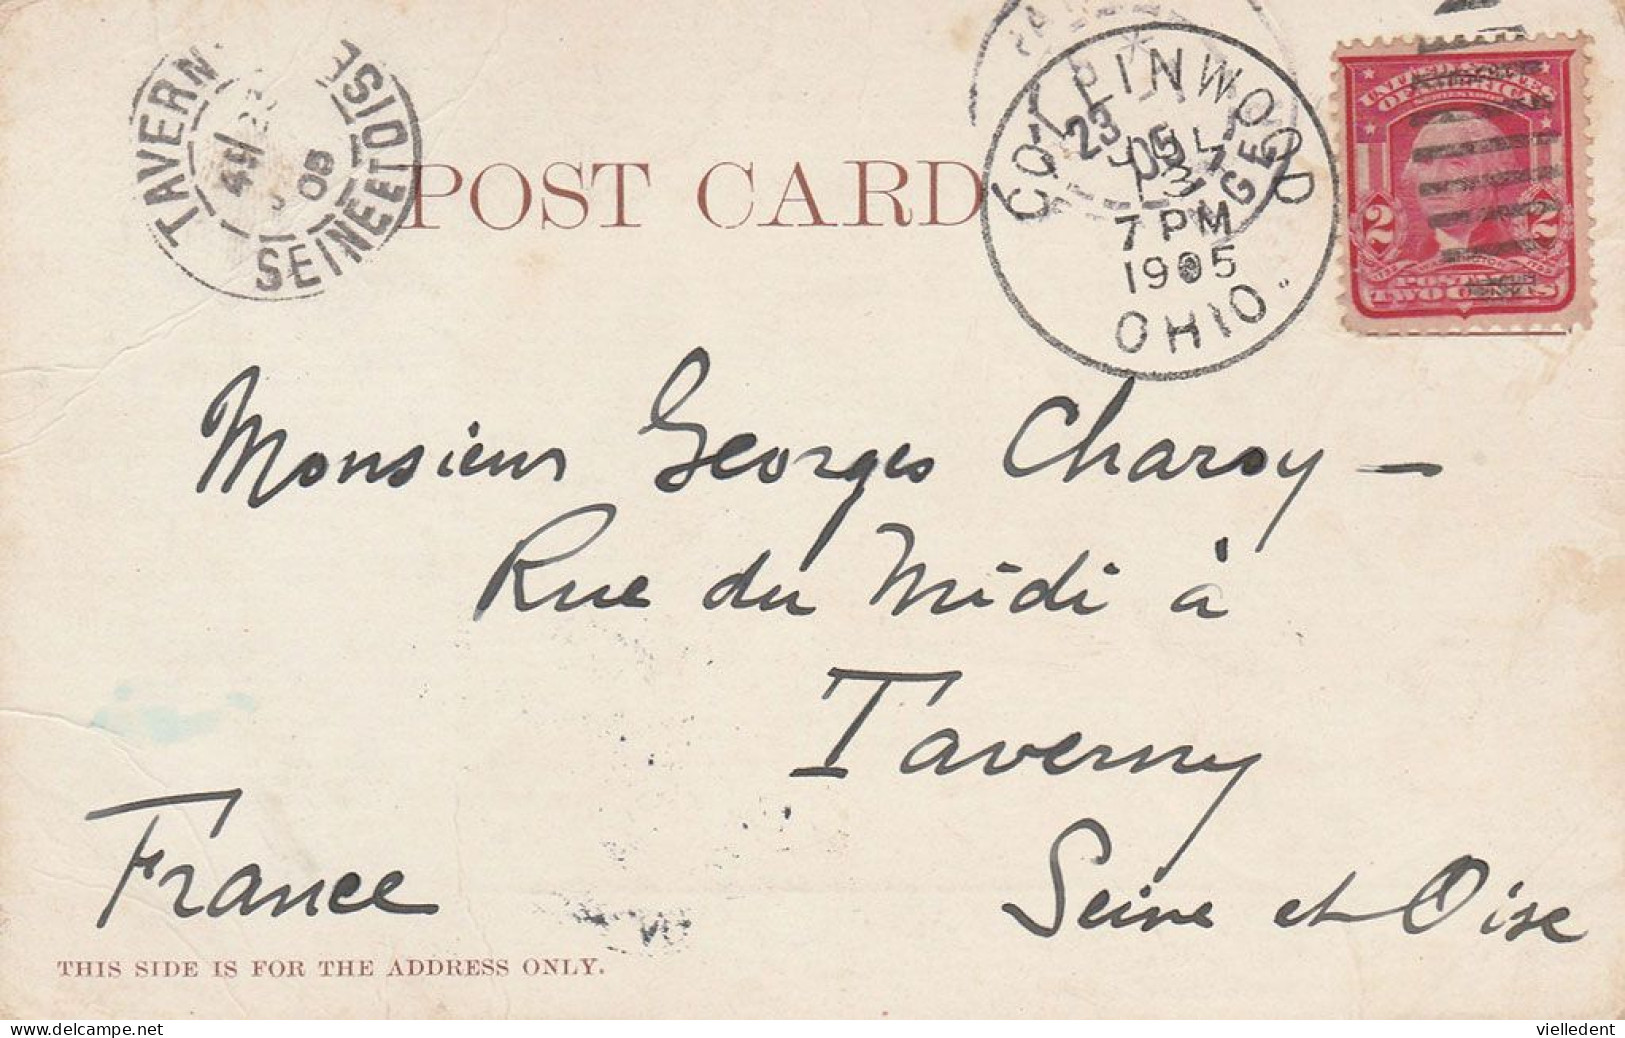 TAVERNY
SEINE ET OISE
4E 23 05
POST CARD
COLLINWOOD
JUL
13
7 PM
1905
OHIO.
23 05
UNITED STATES
OF AMERICA
2 2
TWO CENTS
Monsieur Georges Charoy —
Rue du Midi à
Taverny
France
Seine et Oise
THIS SIDE IS FOR THE ADDRESS ONLY.
www.delcampe.net
vielledent